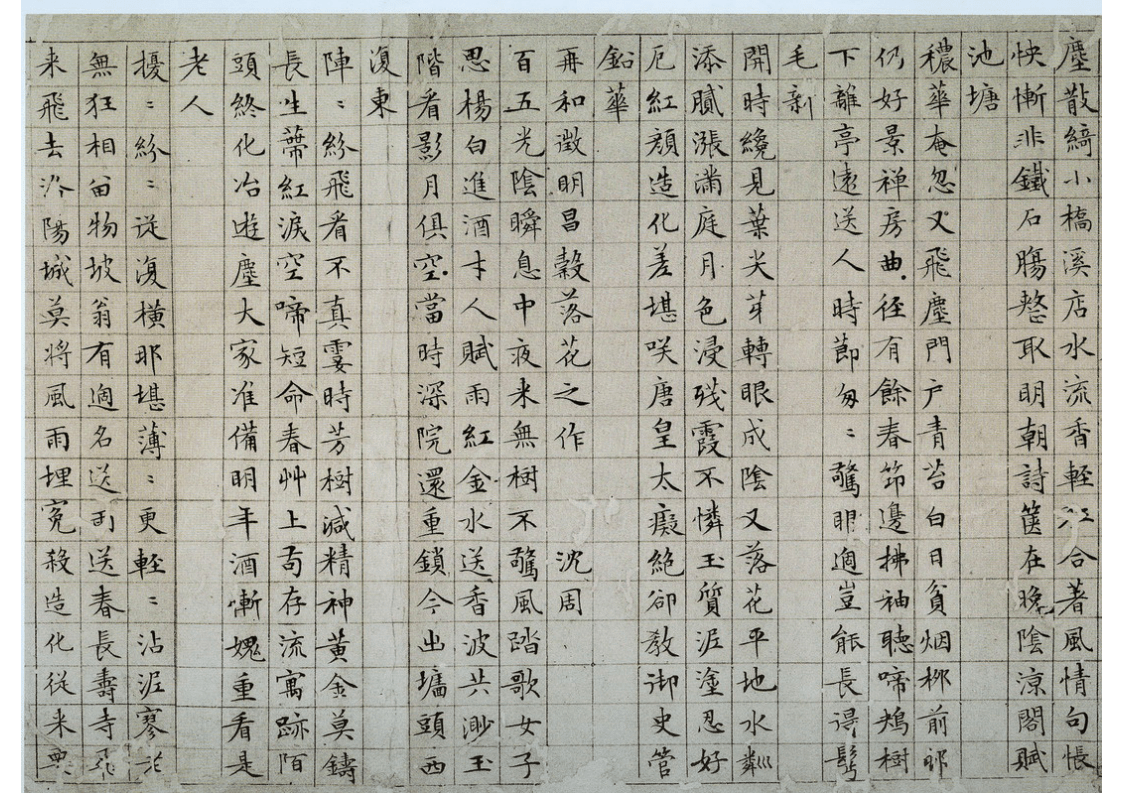 塵散綺小橋溪店水流香輕紅合著風情句悵
怏慚非鐵石腸愁取明朝詩篋在晚陰涼閣賦
池塘
穠華奄忽又飛塵門戶青苔白日貧烟栁前郵
仍好景禅房曲徑有餘春筇邊拂袖聽啼鴂樹
下離亭遠送人時節匆〻驚眼過豈能長得鬂
毛新
開時纔見葉尖芽轉眼成陰又落花平地水粼
添膩漲滿庭月色浸殘霞不憐玉質泥塗忍好
厄紅顏造化差堪咲唐皇太癡絕卻教御史管
鉛華
再和徵明昌穀落花之作 沈周
百五光陰瞬息中夜来無樹不驚風踏歌女子
思楊白進酒才人賦雨紅金水送香波共渺玉
階看影月俱空當時深院還重鎖今出墻頭西
復東
陣〻紛飛看不真霎時芳樹減精神黄金莫鑄
長生蔕紅淚空啼短命春艸上苟存流寓跡陌
頭終化冶遊塵大家准備明年酒慚媿重看是
老人
擾〻紛〻從復橫那堪薄〻更輕〻沾泥寥老
無狂相留物坡翁有過名送雨送春長壽寺飛
来飛去洛陽城莫將風雨埋冤殺造化從来要